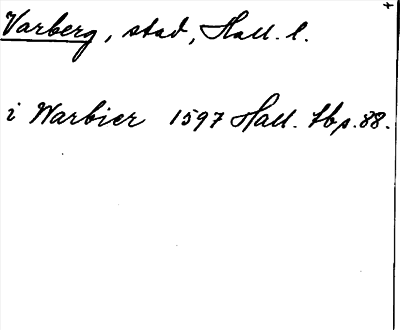 Varberg, stad, Hall. l.
i Warbier 1597 Hall. tbp. 88.